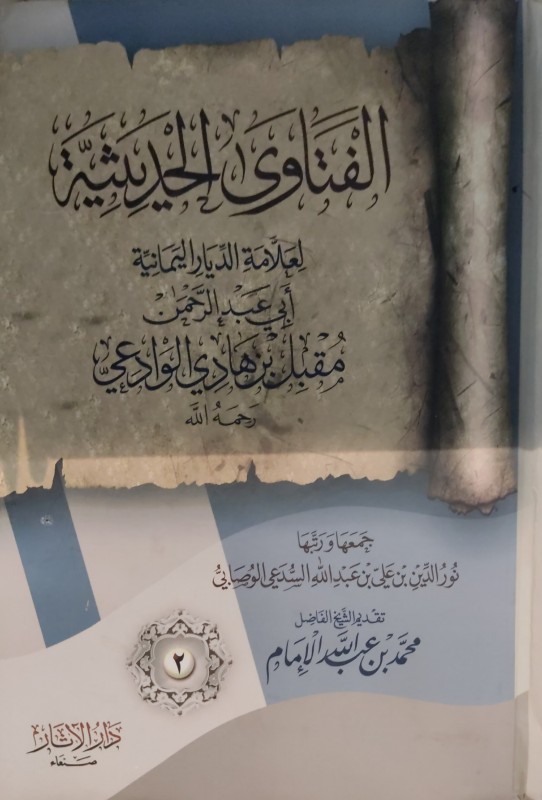 الفَتَاوَى الحَدِيثِيَّة
لِعَلَّامَةِ الدِّيَارِ اليَمَانِيَّةِ
أَبِي عَبْدِ الرَّحْمَنِ
مُقْبِلِ بْنِ هَادِي الوَادِعِيِّ
رَحِمَهُ اللَّه
جَمَعَهَا وَرَتَّبَهَا
نُورُ الدِّينِ بْنُ عَلِيِّ بْنِ عَبْدِ اللَّهِ السُّدَعِيُّ الوُصَابِيُّ
تَقْدِيمُ الشَّيْخِ الفَاضِلِ
مُحَمَّدِ بْنِ عَبْدِ اللَّهِ الإِمَام
٢
دَارُ الآثَار
صَنْعَاء